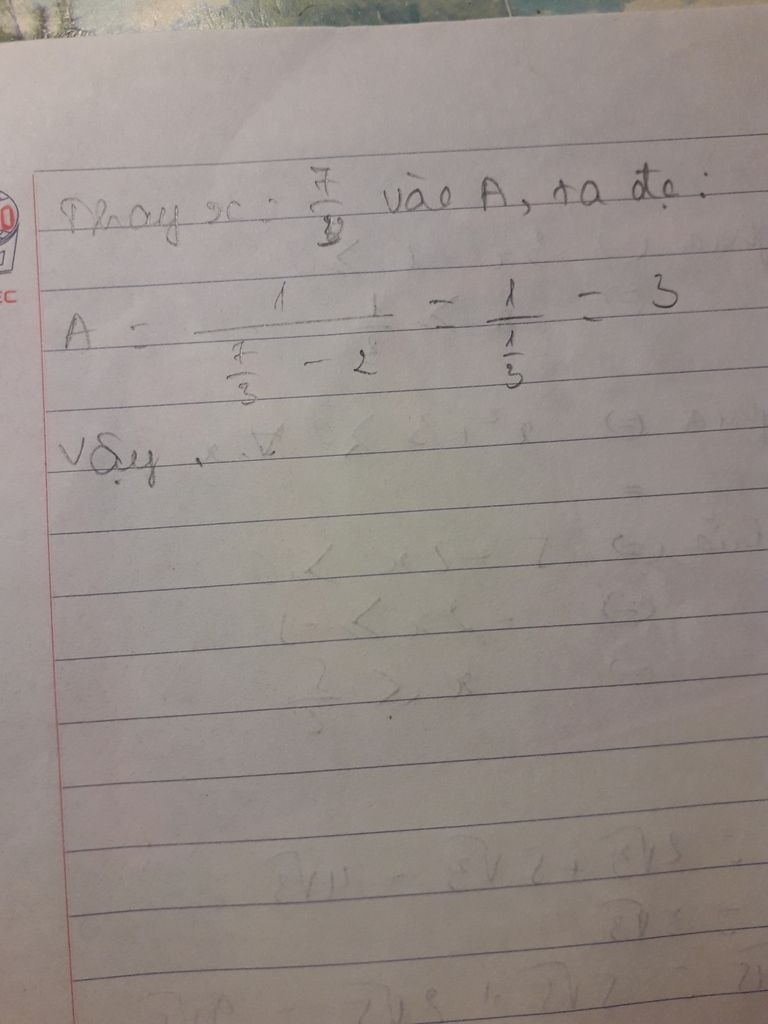 Thay x = 7/3 vào A, ta đc:
A = 1/(7/3 - 2) = 1/(1/3) = 3
Vậy
EC